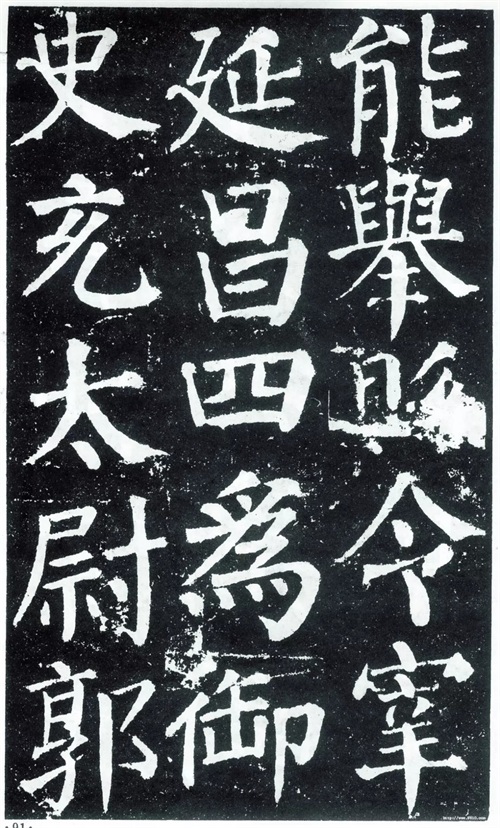 能舉縣令宰
延昌四為御
史充太尉郭